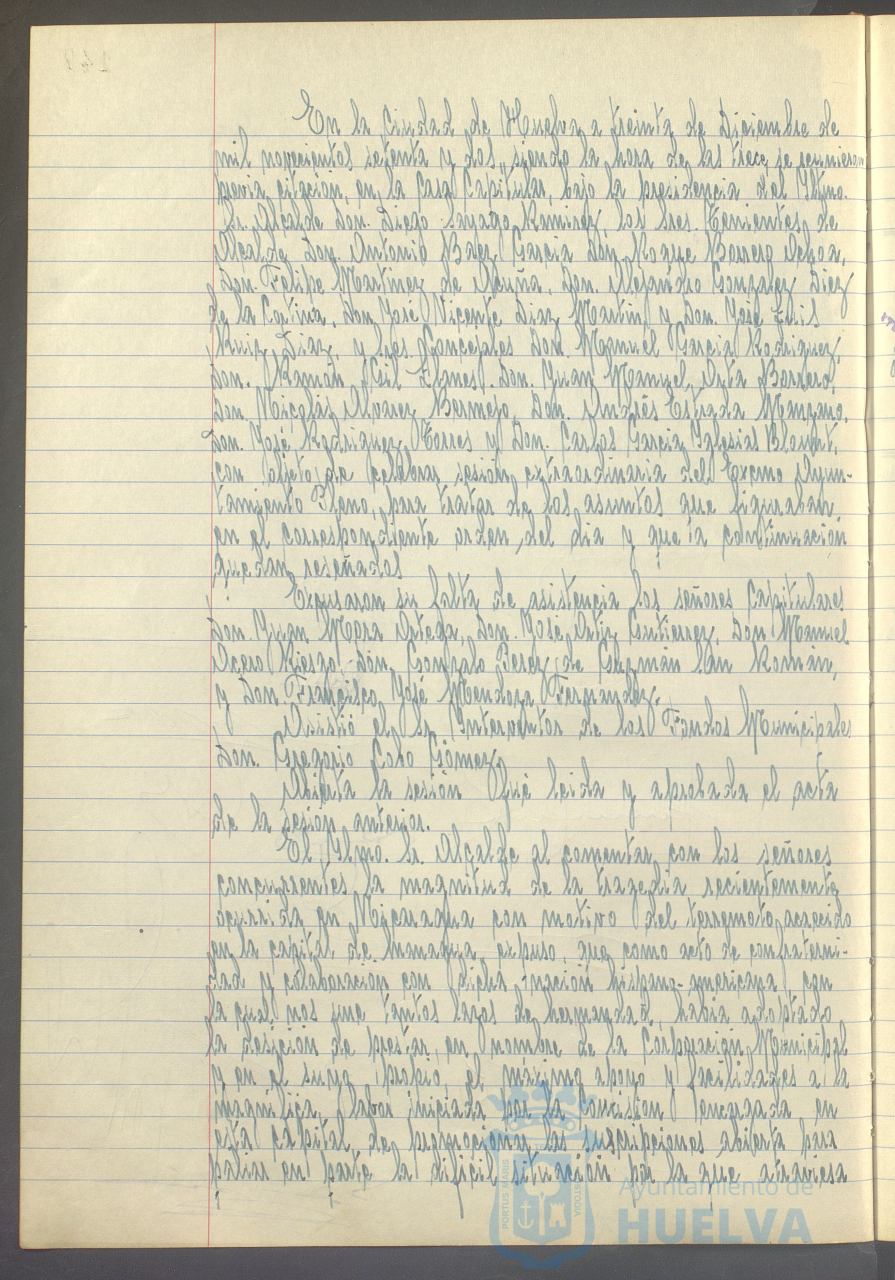 En la Ciudad de Huelva a treinta de Diciembre de
mil novecientos setenta y dos, siendo la hora de las trece se reunieron
previa citación, en la Casa Capitular, bajo la presidencia del Iltmo.
Sr. Alcalde Don. Diego Sayago Ramirez, los Sres. Tenientes de
Alcalde Don. Antonio Baez Garcia Don Roque Borrero Ochoa,
Don. Felipe Martinez de Acuña, Don. Alejandro Gonzalez Diez
de la Cortina, Don José Vicente Diaz Martin y Don. José Luis
Ruiz Diaz, y Sres. Concejales Don. Manuel Garcia Rodriguez,
Don. Ramón Gil Don. Juan Manuel Arta Borrero
Don. Nicolás Alvarez Bermejo, Don. Andrés Estrada Manzano,
Don. José Rodriguez Torres y Don. Carlos Garcia Iglesias Blount,
con objeto de celebrar sesión extraordinaria del Excmo Ayun-
tamiento Pleno, para tratar de los asuntos que figuraban
en el correspondiente orden, del dia y que a continuación
quedan reseñados
Excusaron su falta de asistencia los señores Capitulares
Don. Juan Mora Ortega, Don. José Ortiz Gutierrez, Don Manuel
Acero Riesgo, Don. Gonzalo Perez de Guzmán San Román,
y Don. Francisco José Mendoza Fernandez.
Asistió el Sr. Interventor de los Fondos Municipales
Don. Gregorio Cobo Gómez.
Abierta la sesión fué leida y aprobada el acta
de la sesion anterior.
El Ilmo. Sr. Alcalde al comentar con los señores
concurrentes la magnitud de la tragedia recientemente
ocurrida en Nicaragua con motivo del terremoto acaecido
en la capital de Managua, expuso, que como acto de confraterni-
dad y colaboracion con dicha nación hispano-americana, con
la cual nos une tantos lazos de hermandad, habia adoptado
la desición de prestar, en nombre de la Corporación Municipal
y en el suyo propio, el máximo apoyo y facilidades a la
magnifica labor iniciada por la comision encargada en
esta capital de promocionar las suscripciones abierta para
paliar en parte la dificil situación por la que atraviesa
PORTUS MARIS
CUSTODIA
Ayuntamiento de
HUELVA